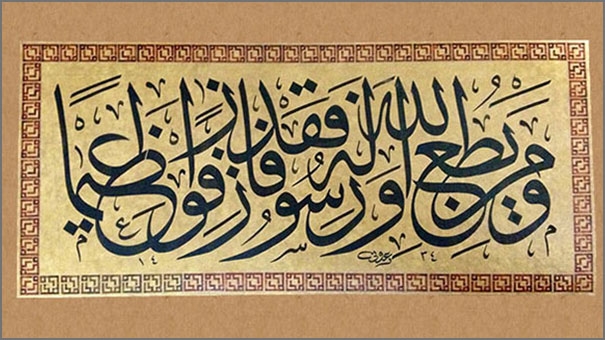 ومن يطع الله ورسوله فقد فاز فوزا عظيما
١٤ ٣٤